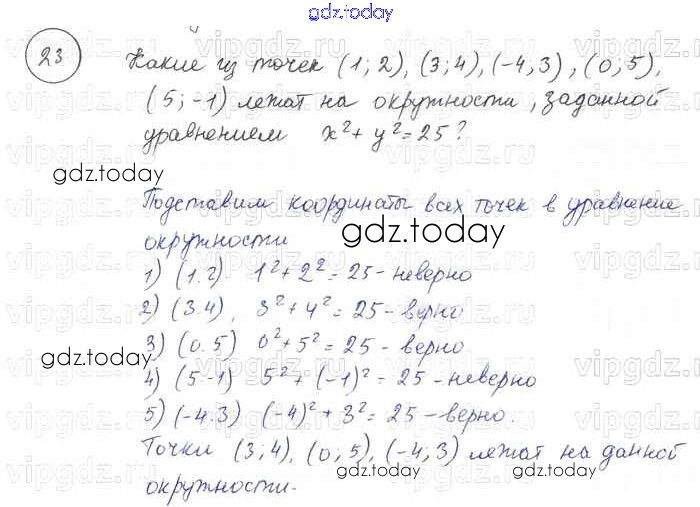 gdz.today
23
Какие из точек (1;2), (3;4), (-4,3), (0;5),
(5;-1) лежат на окружности, заданной
уравнением x²+y²=25?
gdz.today
Подставим координаты всех точек в уравнение
окружности
gdz.today
1) (1.2) 1²+2²=25-неверно
2) (3.4). 3²+4²=25-верно
3) (0.5) 0²+5²=25-верно
gdz.today
4) (5.-1) 5²+(-1)²=25-неверно
5) (-4.3) (-4)²+3²=25-верно.
Точки (3;4), (0;5), (-4;3) лежат на данной
gdz.today
окружности.